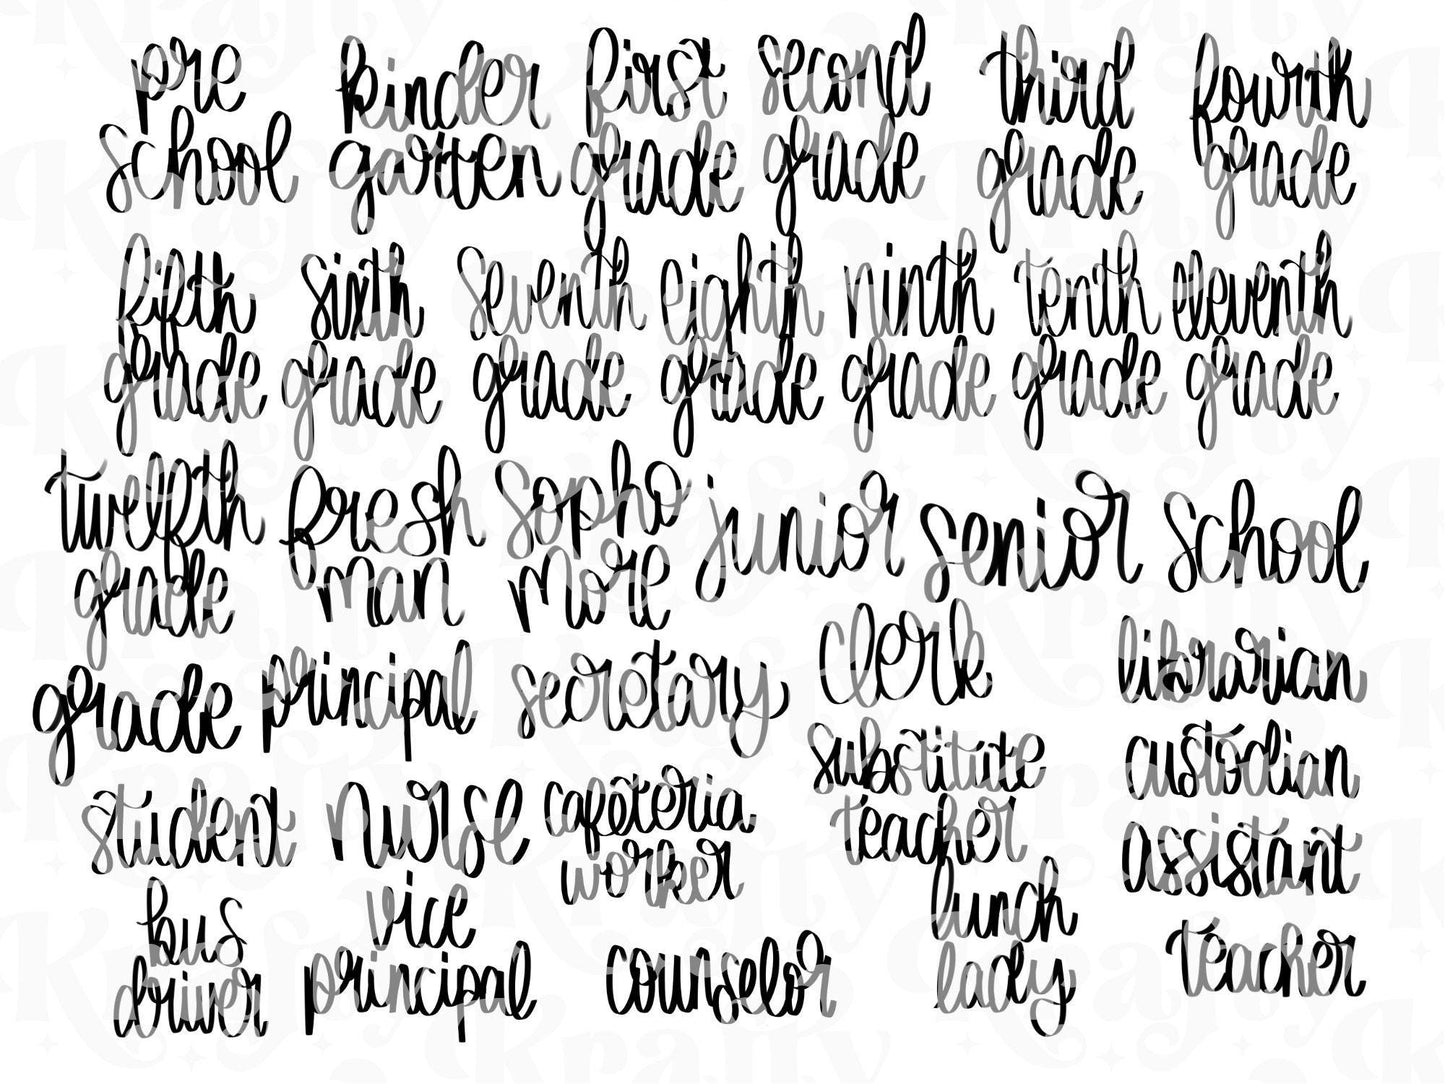 pre
school
kinder
garten
first
grade
second
grade
third
grade
fourth
grade
fifth
grade
sixth
grade
seventh
grade
eighth
grade
ninth
grade
tenth
grade
eleventh
grade
twelfth
grade
fresh
man
sopho
more
junior
senior
school
grade
principal
secretary
clerk
librarian
student
nurse
cafeteria
worker
substitute
teacher
custodian
assistant
bus
driver
vice
principal
counselor
lunch
lady
teacher
Krafty